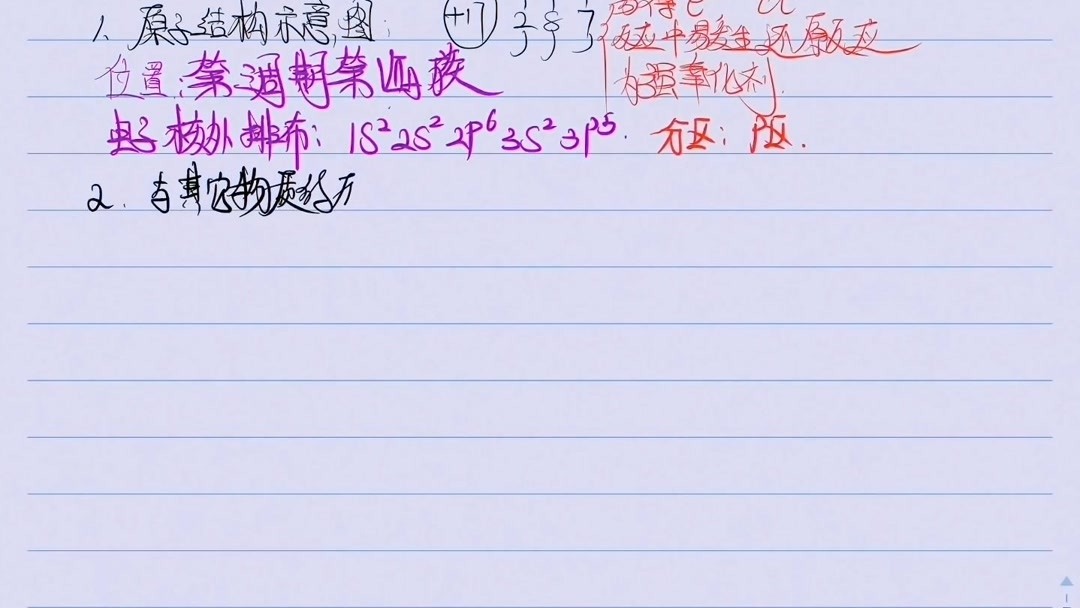 1、原子结构示意图: +17 2 8 7 易得e⁻ Cl⁻
反应中易发生还原反应
为强氧化剂.
位置:第三周期第ⅦA族
电子核外排布: 1S²2S²2P⁶3S²3P⁵. 分区: P区.
2. 与其它物质反